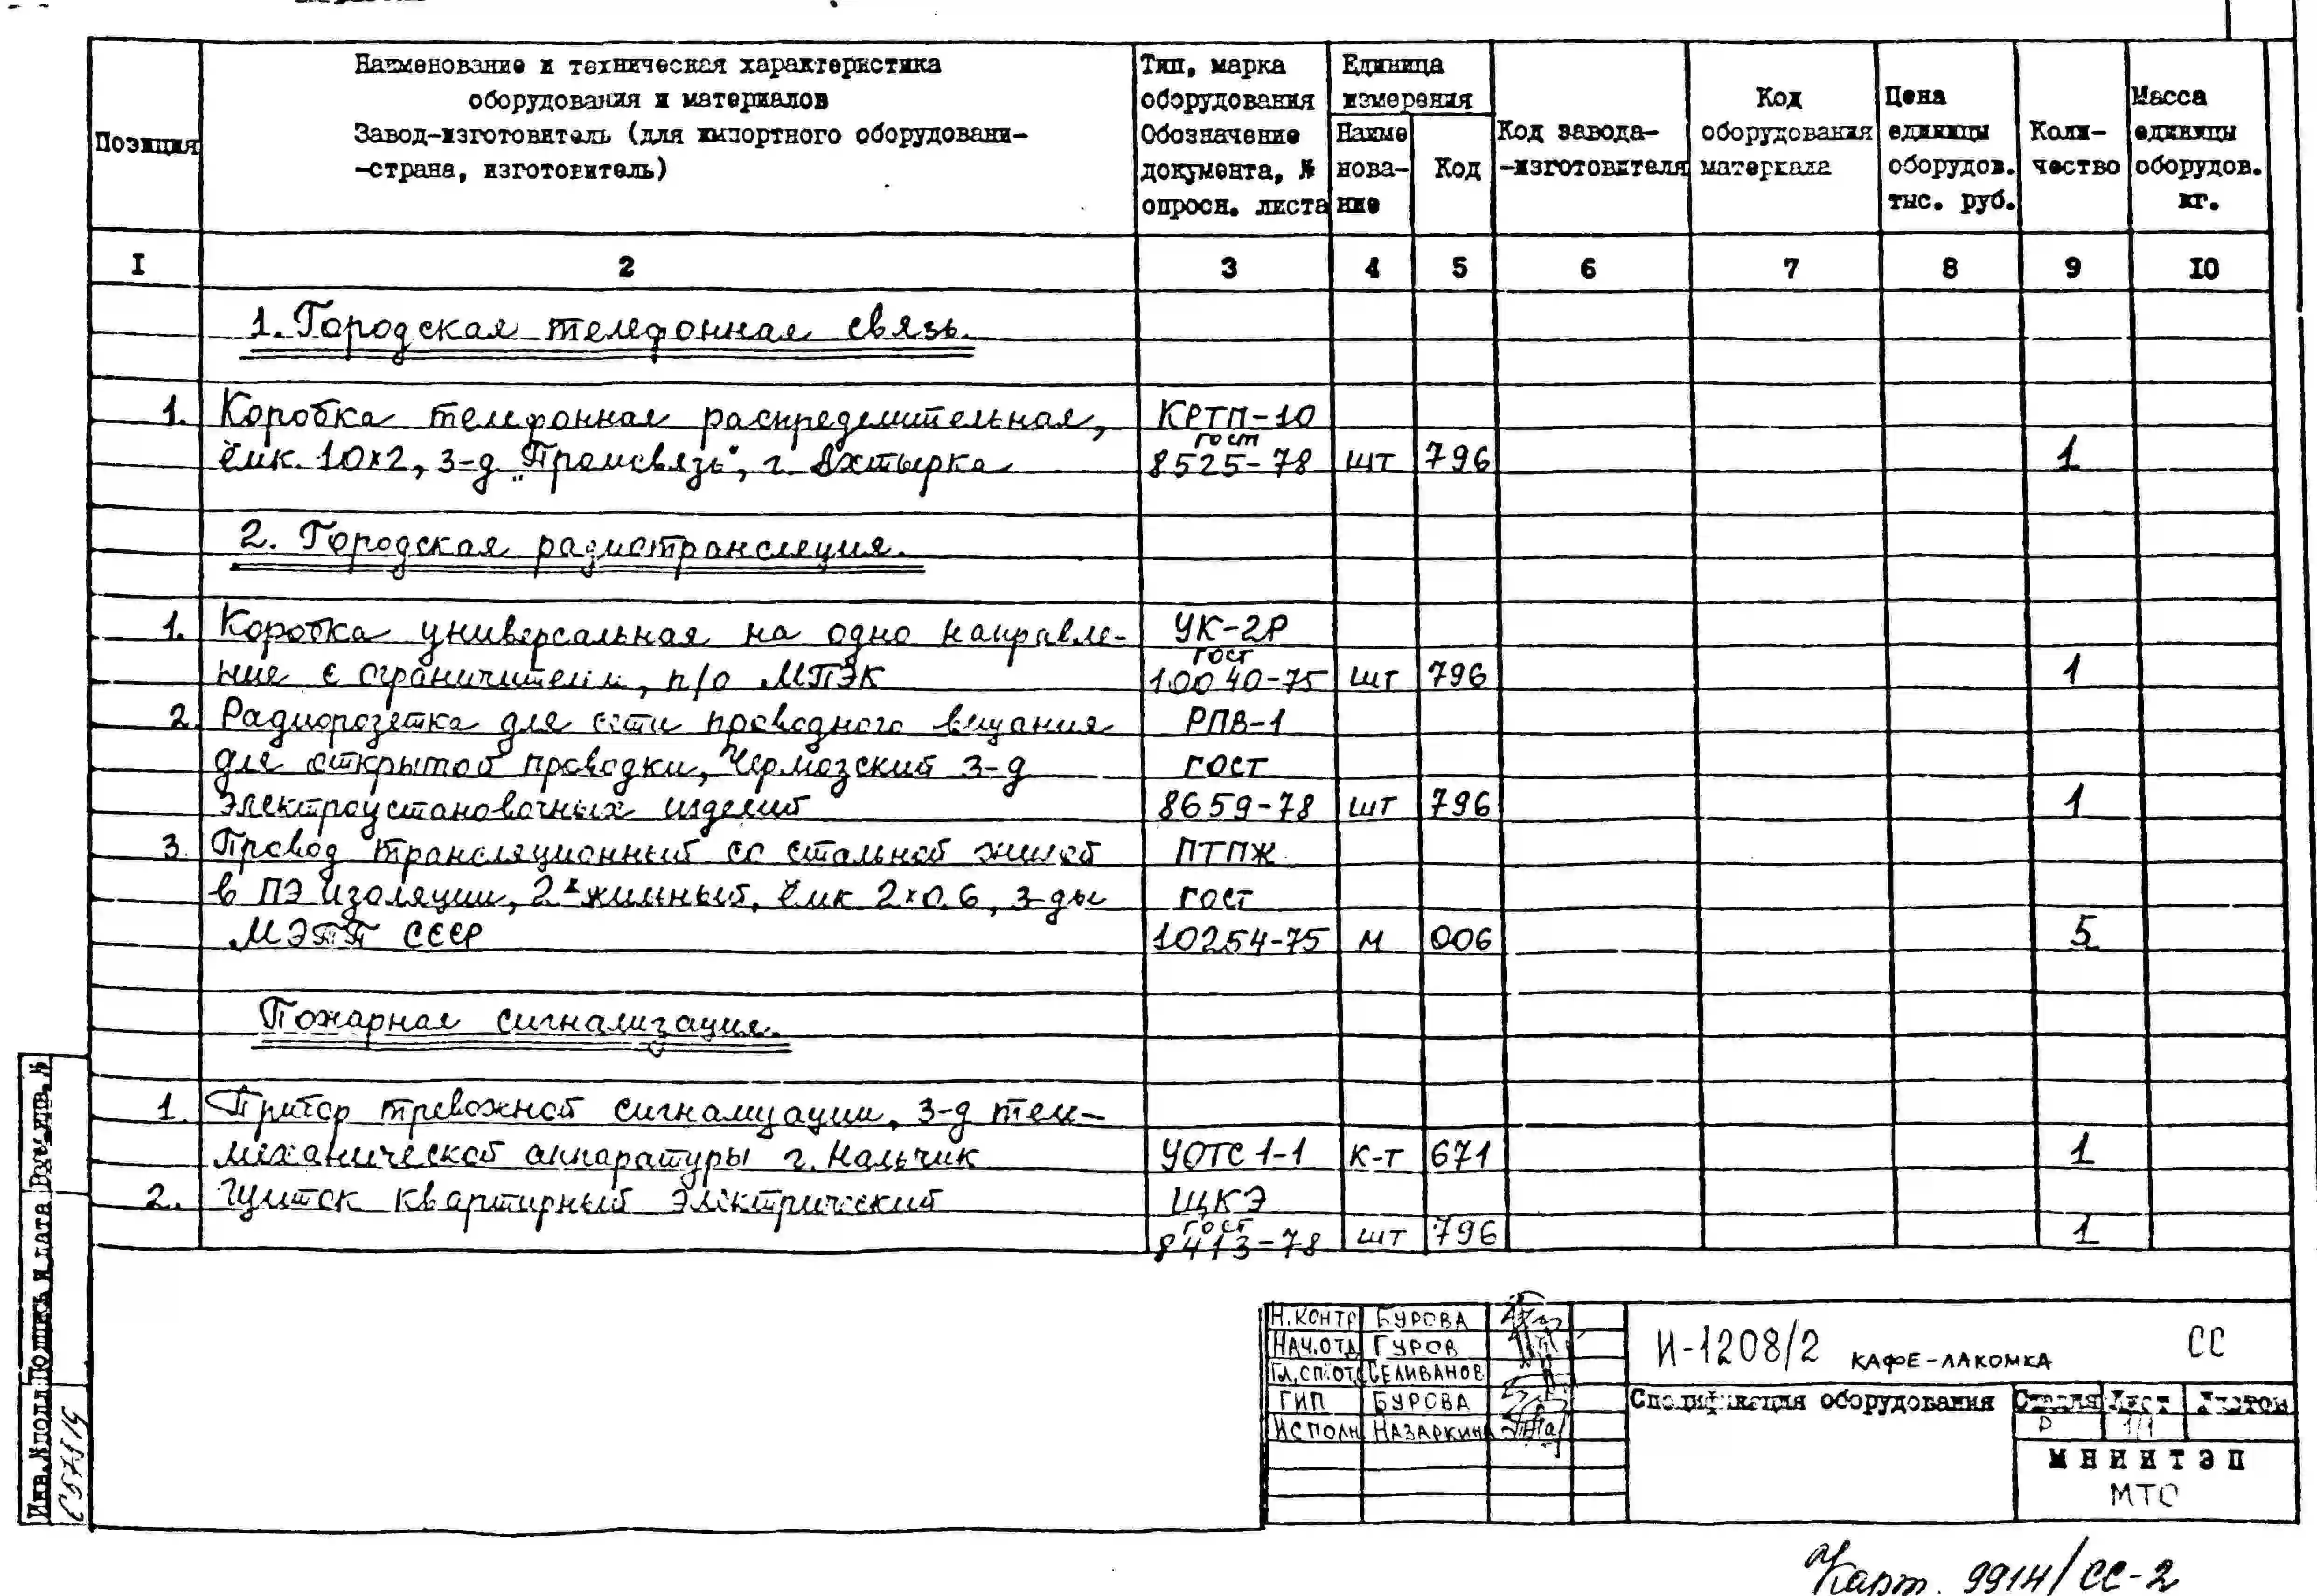 Позиция
Наименование и техническая характеристика
оборудования и материалов
Завод-изготовитель (для импортного оборудовани-
-страна, изготовитель)
Тип, марка
оборудования
Обозначение
документа, №
опросн. листа
Единица
измерения
Наиме
нова-
ние
Код
Код завода-
-изготовителя
Код
оборудования
материала
Цена
единицы
оборудов.
тыс. руб.
Коли-
чество
Масса
единицы
оборудов.
кг.
I 2 3 4 5 6 7 8 9 10
1. Городская телефонная связь.
1. Коробка телефонная распределительная, КРТП-10
ёмк. 10х2, з-д „Промсвязь", г. Ахтырка ГОСТ 8525-78 шт 796 1
2. Городская радиотрансляция.
1. Коробка универсальная на одно направле- УК-2Р
ние с ограничителем, п/о МПЭК ГОСТ 10040-75 шт 796 1
2. Радиорозетка для сети проводного вещания РПВ-1
для открытой проводки, Чермозский з-д ГОСТ
электроустановочных изделий 8659-78 шт 796 1
3. Провод трансляционный со стальной жилой ПТПЖ
в ПЭ изоляции, 2х жильный, ёмк 2х0.6, з-ды ГОСТ
МЭТП СССР 10254-75 м 006 5
Пожарная сигнализация.
1. Прибор тревожной сигнализации, з-д теле-
механической аппаратуры г. Нальчик УОТС 1-1 к-т 671 1
2. Щиток квартирный электрический ЩКЭ
ГОСТ 8413-78 шт 796 1
Н.КОНТР БУРОВА
НАЧ.ОТД ГУРОВ
ГЛ.СП.ОТД СЕЛИВАНОВ
ГИП БУРОВА
ИСПОЛН НАЗАРКИНА
И-1208/2 КАФЕ-ЛАКОМКА СС
Спецификация оборудования
Стадия Лист Листов
Р 1/1
МНИИТЭП
МТС
Взам.инв. №
Подпись и дата
Инв.№подл
Карт. 9914/СС-2